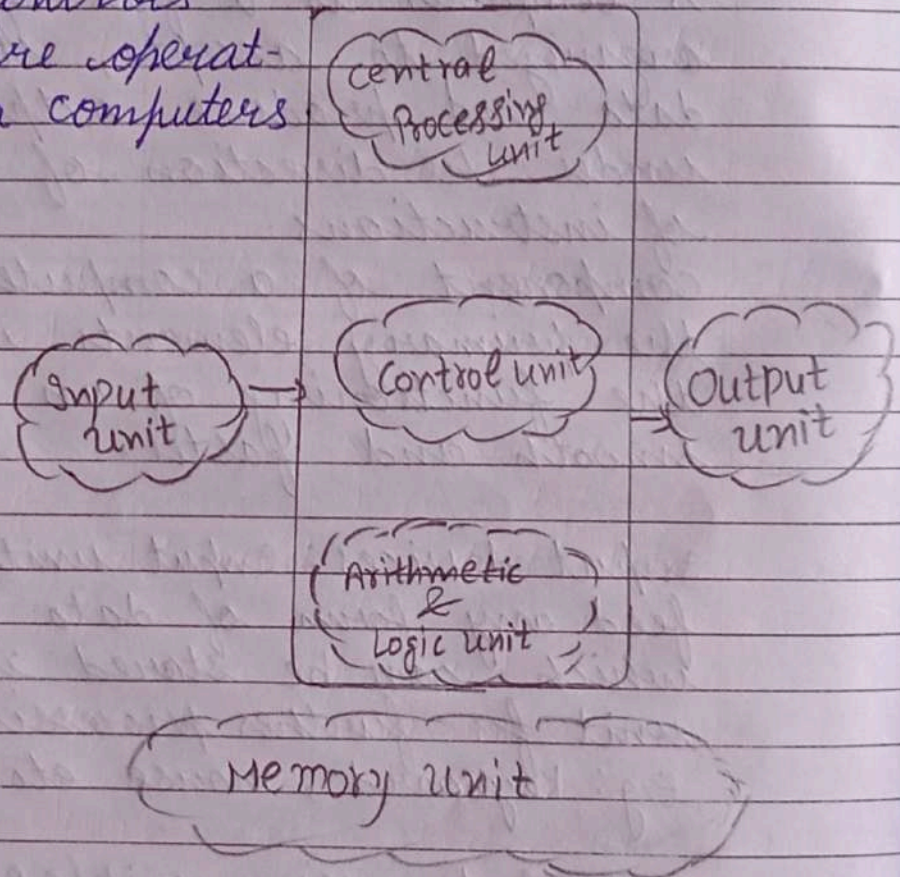 re operat-
computers
Central
Processing
unit
Input
unit
Control unit
Output
unit
Arithmetic
&
Logic unit
Memory unit